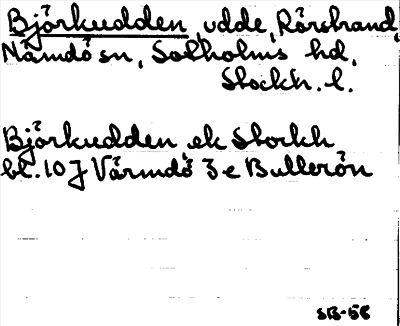 Björkudden, udde, Rörstrand,
Nämdö sn, Sotholms hd,
Stockh. l.
Björkudden ek Stockh
bl. 10 J Värmdö 3 e Bullerön
SB-58